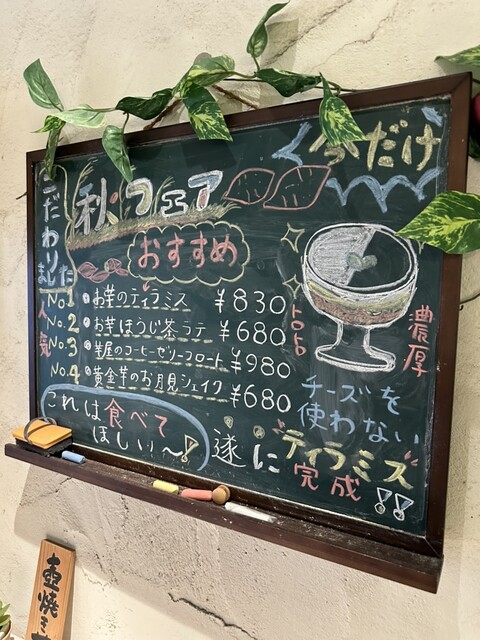 今だけ
秋フェア
おすすめ
こだわりました
人気
No.1 お芋のティラミス ¥830
No.2 お芋ほうじ茶ラテ ¥680
No.3 芋屋のコーヒーゼリーフロート ¥980
No.4 黄金芋のお月見シェイク ¥680
トロトロ
濃厚
これは食べて
ほしい〜!
チーズを
使わない
遂にティラミス
完成!!
壺焼き